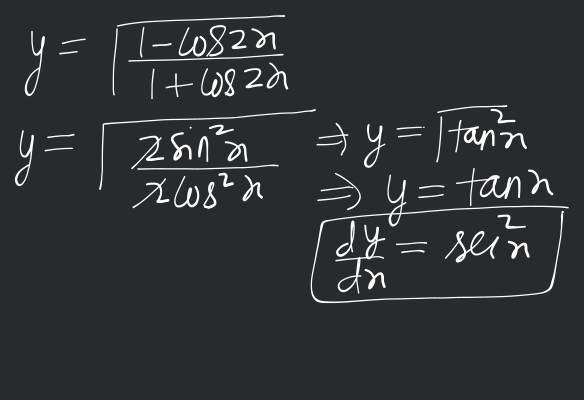 y = √((1-cos2x)/(1+cos2x))
y = √((2sin²x)/(2cos²x)) ⇒ y = √(tan²x)
⇒ y = tanx
dy/dx = sec²x